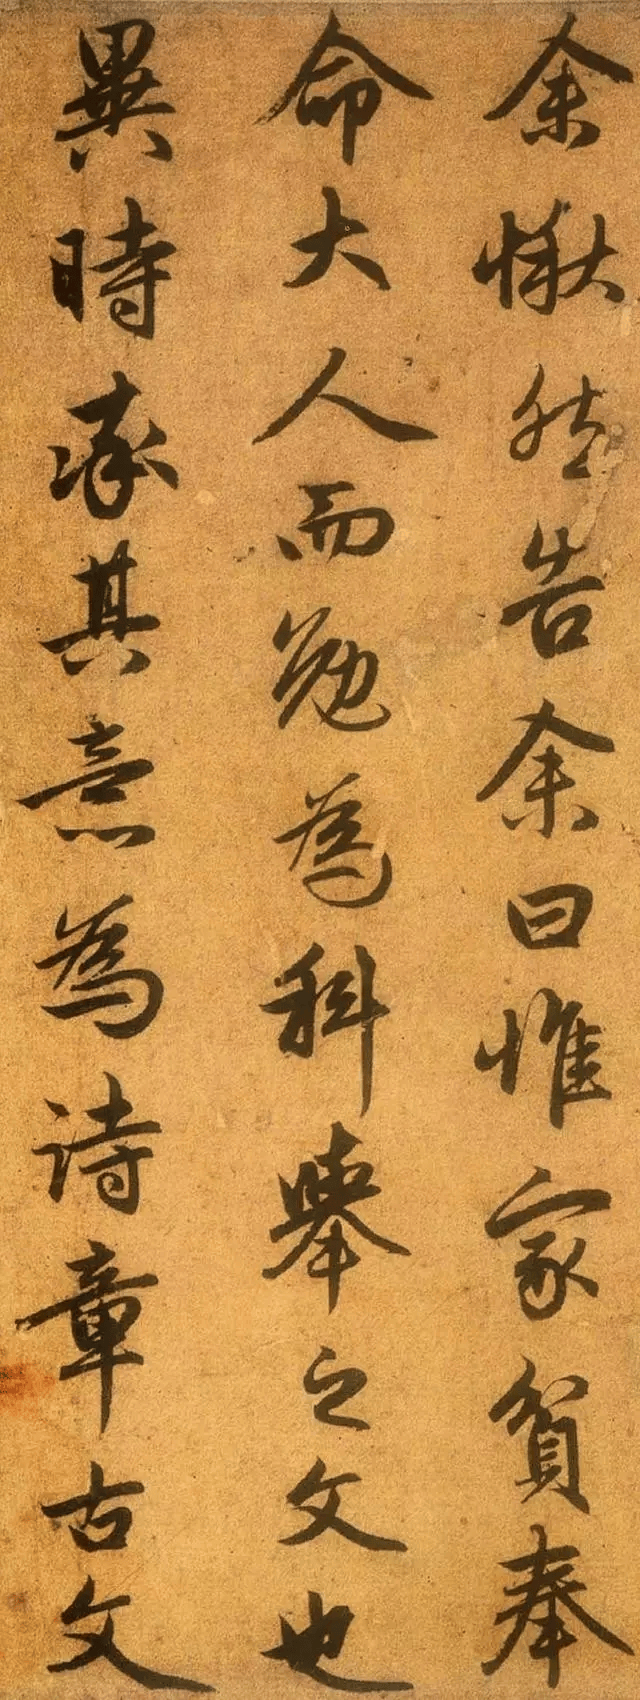 余愀然告余曰惟家貧奉
命大人而勉為科舉之文也
異時率其意為詩章古文